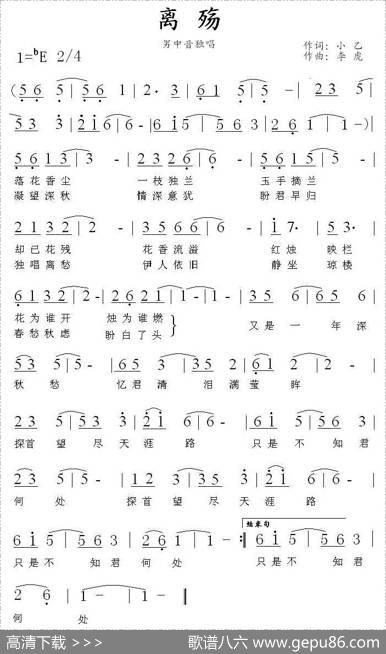 离 殇
男中音独唱
1=♭E 2/4
作词：小 乙
作曲：李 虎
(5 6 5 | 5 6 | 1 2· 3 | 6 1 5 | 5 - | 2 3 5 |
5 3 3 | 2 i 6 | 6 - | 6 i 5 | 5 6 3 | 2 1 2 6 | 1 -) |
5 6 1 3 | 3 - | 2 3 2 6 | 6 - | 5 6 1 5 | 5 - |
落 花 香 尘 一 枝 独 兰 玉 手 摘 兰
凝 望 深 秋 情 深 意 犹 盼 君 早 归
2 1 3 2 | 2 - | 3 5 6 6 | 6 - | i 7· | 5 3· |
却 已 花 残 花 香 流 溢 红 烛 映 栏
独 唱 离 愁 伊 人 依 旧 静 坐 琼 楼
6 1 3 2 | 2 - | 2 6 2 1 | 1 - | 3 5 6 | 6 5 6 |
花 为 谁 开 烛 为 谁 燃
春 愁 秋 虑 盼 白 了 头
又 是 一 年 深
5 3 | 5 5 - | 6 5 3 | 5 1 3 | 2 2 | 2 - |
秋 愁 忆 君 清 泪 满 莹 眸
2 3 5 | 5 3 3 | 2 i 6 | 6 - | 6 i 5 | 5 6 3 |
探首 望 尽 天 涯 路 只 是 不 知 君
2 3 | 5 5 - | 1 2 3 | 5 3 5 | 2 i 6 | 6 - |
何 处 探首 望 尽 天 涯 路
6 i 5 | 5 6 3 | 2 6 | 1 - :| 6 i 5 | 5 6 3 |
结束句
只 是 不 知 君 何 处 只 是 不 知 君
2 6· | 1 - | 1 - ‖
何 处
高清下载 >>>
歌谱八六 www.gepu86.com